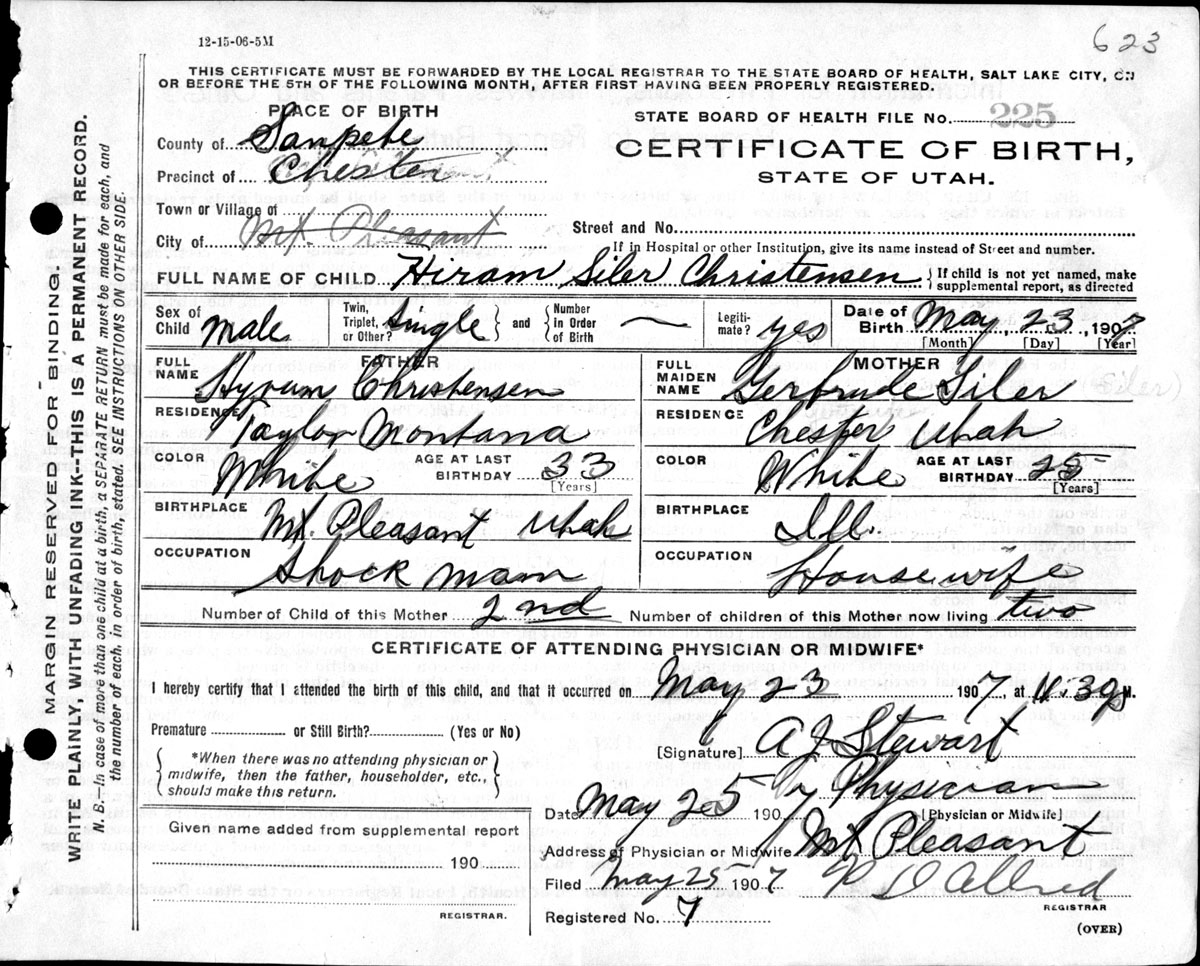 12-15-06-5M
623
THIS CERTIFICATE MUST BE FORWARDED BY THE LOCAL REGISTRAR TO THE STATE BOARD OF HEALTH, SALT LAKE CITY, ON
OR BEFORE THE 5TH OF THE FOLLOWING MONTH, AFTER FIRST HAVING BEEN PROPERLY REGISTERED.
PLACE OF BIRTH
STATE BOARD OF HEALTH FILE No. 225
County of Sanpete
CERTIFICATE OF BIRTH,
STATE OF UTAH.
Precinct of Chester
Town or Village of
City of Mt. Pleasant
Street and No.
If in Hospital or other Institution, give its name instead of Street and number.
FULL NAME OF CHILD Hiram Siler Christensen } If child is not yet named, make supplemental report, as directed
Sex of Child Male Twin, Triplet, or Other? Single } and { Number in Order of Birth — Legiti- mate? yes Date of Birth May 23, 1907
[Month] [Day] [Year]
FATHER
MOTHER
FULL NAME Hyrum Christensen
FULL MAIDEN NAME Gertrude Siler
(Siler)
RESIDENCE Taylor Montana
RESIDENCE Chester Utah
COLOR White AGE AT LAST BIRTHDAY 33 [Years]
COLOR White AGE AT LAST BIRTHDAY 25 [Years]
BIRTHPLACE Mt. Pleasant Utah
BIRTHPLACE Ill.
OCCUPATION Stock Man
OCCUPATION Housewife
Number of Child of this Mother 2nd Number of children of this Mother now living two
CERTIFICATE OF ATTENDING PHYSICIAN OR MIDWIFE*
I hereby certify that I attended the birth of this child, and that it occurred on May 23 1907, at M.
Premature or Still Birth? (Yes or No)
[Signature] A J Stewart
{ *When there was no attending physician or midwife, then the father, householder, etc., should make this return. }
Physician
Date May 25 1907 [Physician or Midwife]
Given name added from supplemental report
190
REGISTRAR.
Address of Physician or Midwife Mt Pleasant
Filed May 25 1907 Allred
REGISTRAR
Registered No. 7
(OVER)
MARGIN RESERVED FOR BINDING
WRITE PLAINLY, WITH UNFADING INK--THIS IS A PERMANENT RECORD.
N. B.--In case of more than one child at a birth, a SEPARATE RETURN must be made for each, and
the number of each. in order of birth, stated. SEE INSTRUCTIONS ON OTHER SIDE.